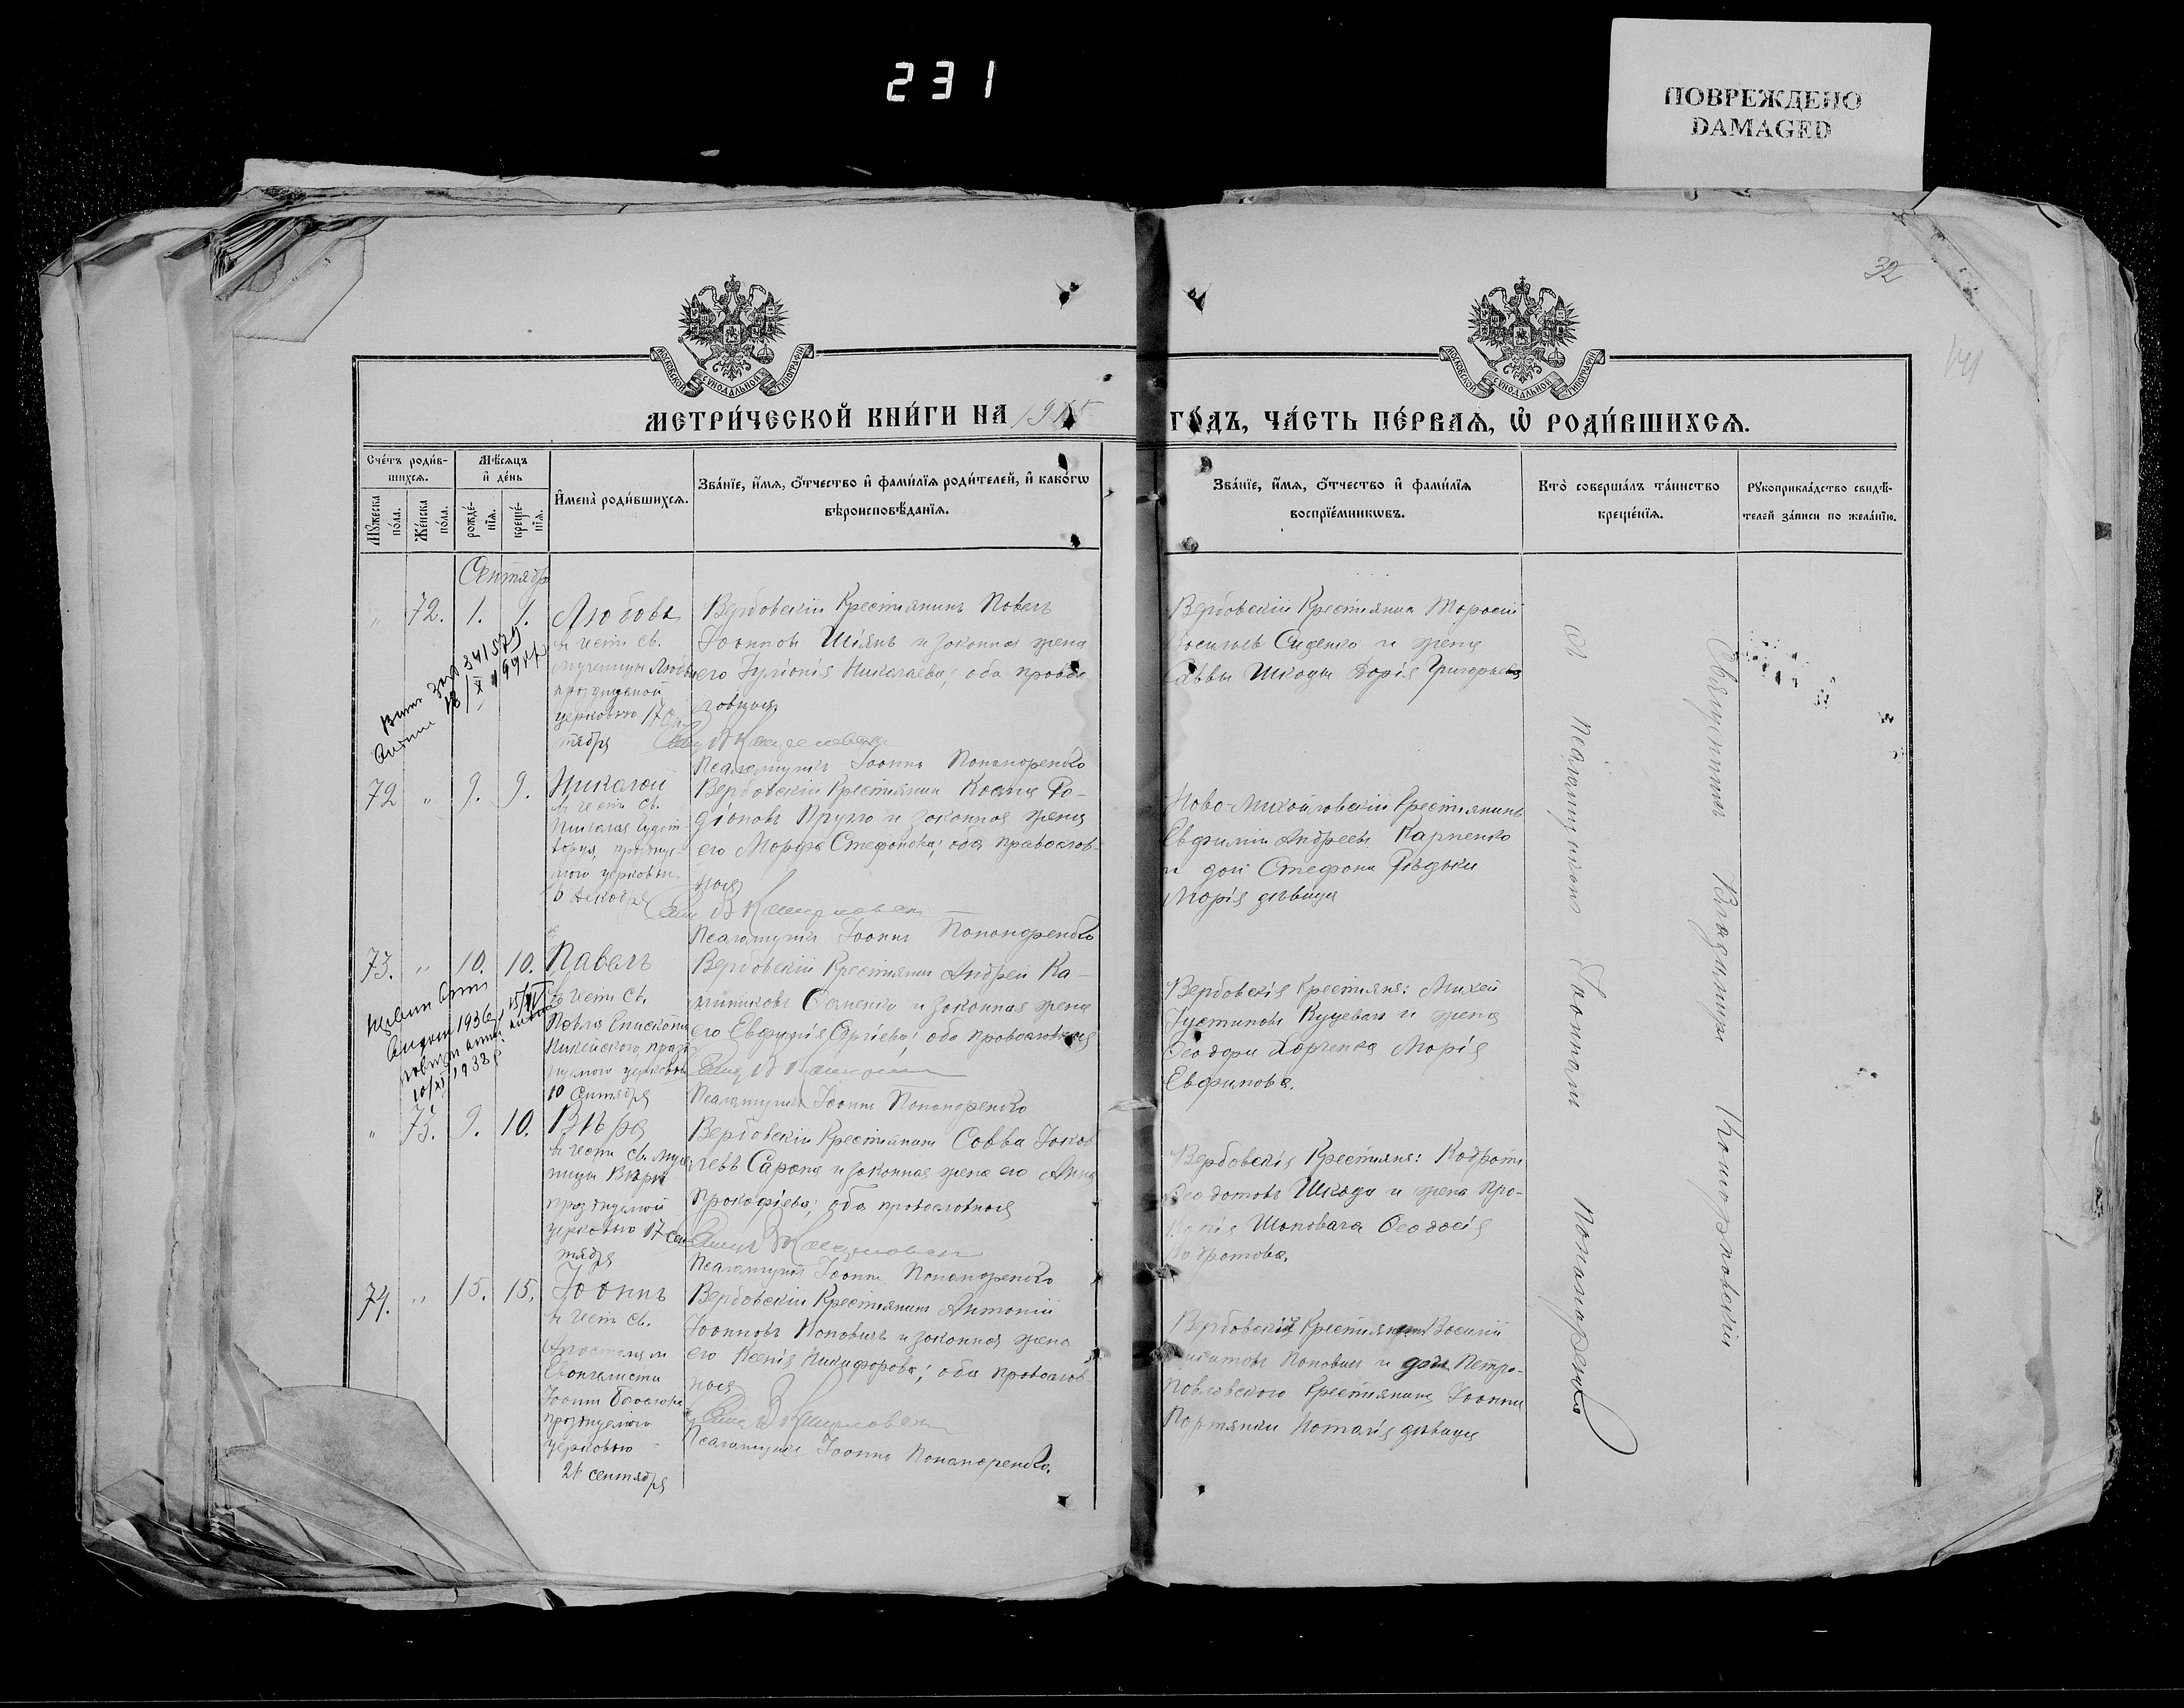 231
ПОВРЕЖДЕНО
DAMAGED
32
МОСКОВСКОЙ СУНОДАЛЬНОЙ ТИПОГРАФІИ
МОСКОВСКОЙ СУНОДАЛЬНОЙ ТИПОГРАФІИ
МЕТРИ́ЧЕСКОЙ КНИ́ГИ НА 1915
ГО́ДЪ, ЧА́СТЬ ПЕ́РВАѦ, Ѡ҆ РОДИ́ВШИХСѦ.
Сче́тъ роди́в-
шихсѧ.
Мꙋ́жеска по́ла.
Же́нска по́ла.
Мѣ́сѧцъ
и҆ де́нь
рожде́-
нїѧ.
креще́-
нїѧ.
И҆мена̀ роди́вшихсѧ.
Зва́нїе, и҆́мѧ, ѻ҆́тчество и҆ фами́лїѧ роди́телей, и҆ како́гѡ
вѣроисповѣ́данїѧ.
Зва́нїе, и҆́мѧ, ѻ҆́тчество и҆ фами́лїѧ
воспрїе́мникѡвъ.
Кто̀ соверша́лъ та́инство
креще́нїѧ.
Рꙋкоприкла́дство свидѣ́-
телей за́писи по жела́нїю.
Сентябр
" 72. 1. 1. Любовь
въ честь св.
мученицы Любви
празднуемой
церковью 17 Сен-
тября
Вербовскій Крестьянинъ Павелъ
Іоанновъ Шіянъ и законная жена
его Іуліанія Николаева; оба правос-
лавные.
Псаломщикъ Іоаннъ Пономаренко
Вербовскій Крестьянинъ Тарасій
Васильевъ Сиденко и жена
Саввы Шкоды Дарія Григорьева
341579
72 " 9. 9. Николай
въ честь св.
Николая Чудот-
ворца, праздну-
емого церковью
6 Декабря
Вербовскій Крестьянинъ Косма Ро-
діоновъ Прутло и законная жена
его Марѳа Стефанова; оба православ-
ные
Псаломщикъ Іоаннъ Пономаренко
Ново-Михайловскій Крестьянинъ
Евфимій Андреевъ Карпенко
и дочь Стефана Рѣдьки
Марія дѣвица
73. " 10. 10. Павелъ
въ честь св.
Павла Епископа
Никейского, празд-
нуемого церковью
10 Сентября
Вербовскій Крестьянинъ Андрей Ка-
линиковъ Семенко и законная жена
его Евфимія Сергіева; оба православные
Псаломщикъ Іоаннъ Пономаренко
Вербовскія Крестьяне: Михей
Іустиновъ Куцеваль и жена
Ѳеодора Харченка Марія
Евфимова.
1936
10/XI 1938 р.
" 73. 9. 10. Вѣра
въ честь св. муче-
ницы Вѣры
празднуемой
церковью 17 Сен-
тября
Вербовскій Крестьянинъ Савва Іаков-
левъ Сарана и законная жена его Анна
Прокофіева; оба православные
Псаломщикъ Іоаннъ Пономаренко
Вербовскія Крестьяне: Кодратъ
Ѳеодотовъ Шкода и жена Про-
копія Шаповала Ѳеодосія
Кодратова.
74. " 15. 15. Іоаннъ
въ честь св.
Апостола и
Евангелиста
Іоанна Богослова
празднуемого
церковью
26 сентября
Вербовскій Крестьянинъ Антоній
Іоанновъ Поповичъ и законная жена
его Ксенія Никифорова; оба православ-
ные
Псаломщикъ Іоаннъ Пономаренко.
Вербовскій Крестьянинъ Василій
Поповичъ и дочь Петро-
павловского Крестьянина Іоанна
Портянки Наталія дѣвица
Священникъ Владиміръ
съ псаломщикомъ Іоанномъ Пономаренко